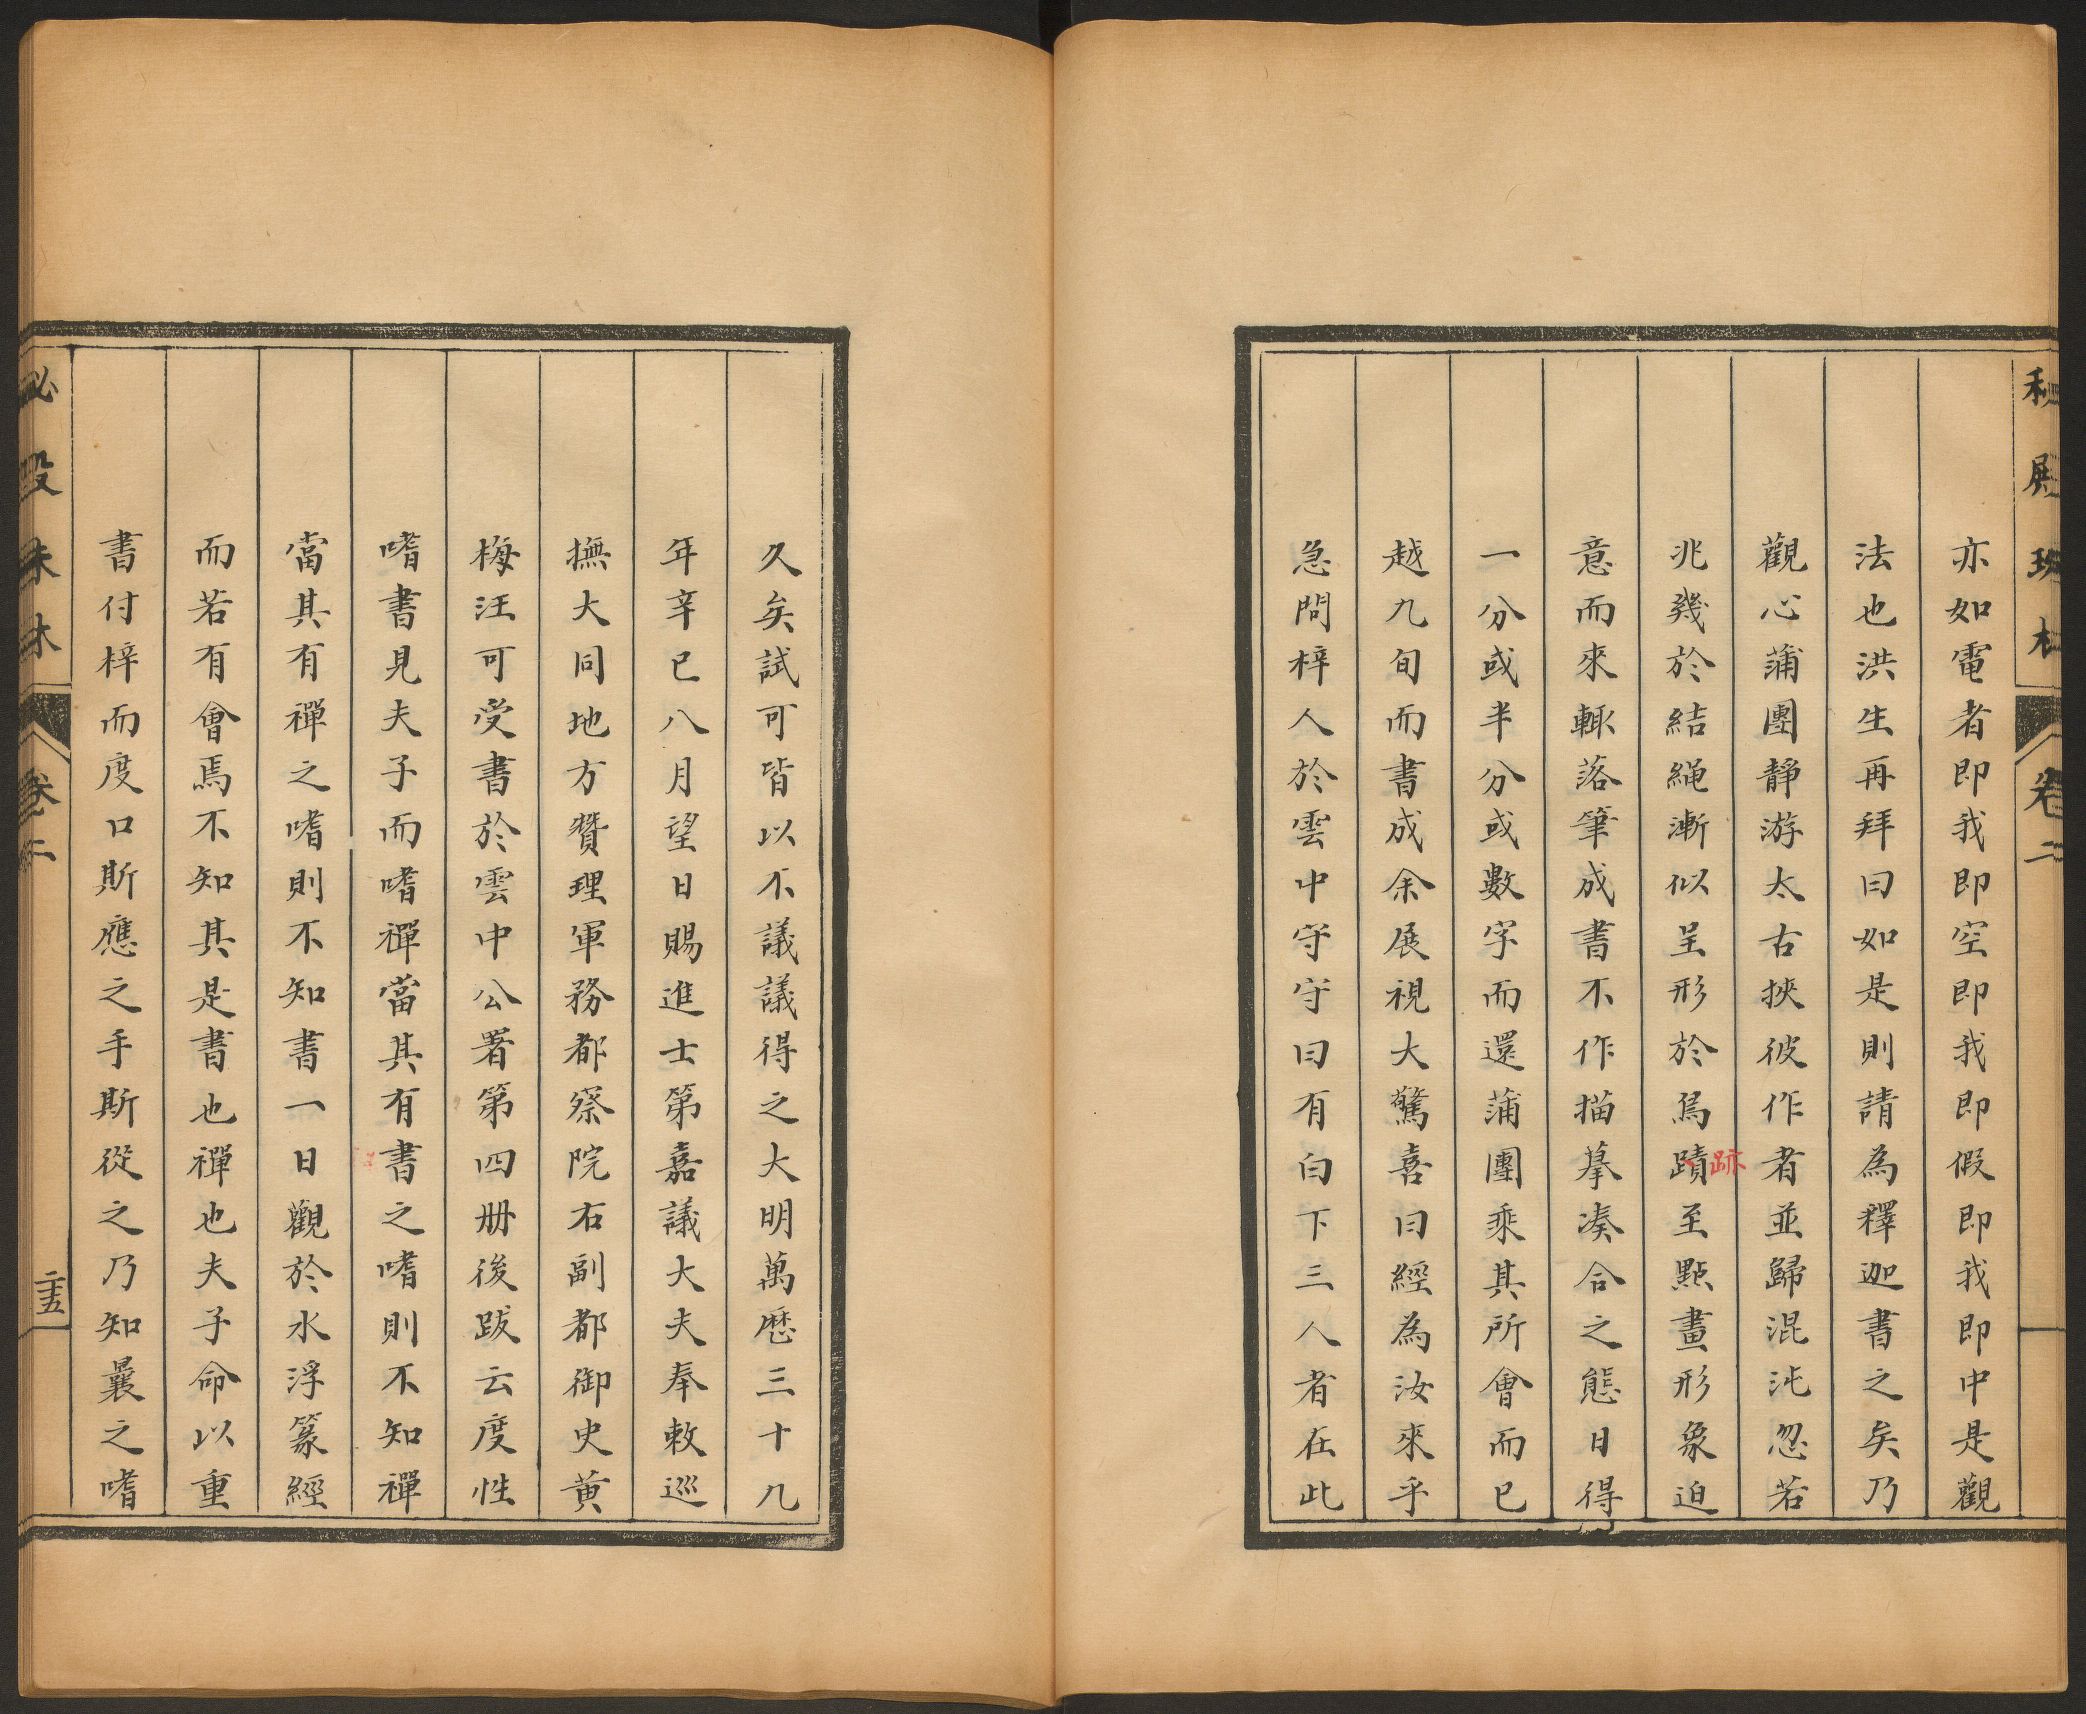 秘殿珠林
卷二
亦如電者即我即空即我即假即我即中是觀
法也洪生再拜曰如是則請為釋迦書之矣乃
觀心蒲團靜游太古挾彼作者並歸混沌忽若
兆幾於結繩漸似呈形於鳥蹟至點畫形象迫
跡
意而來輒落筆成書不作描摹湊合之態日得
一分或半分或數字而還蒲團乘其所會而已
越九旬而書成余展視大驚喜曰經為汝來乎
急問梓人於雲中守守曰有白下三人者在此
久矣試可皆以不議議得之大明萬歷三十九
年辛巳八月望日賜進士第嘉議大夫奉敕巡
撫大同地方贊理軍務都察院右副都御史黃
梅汪可受書於雲中公署第四冊後跋云度性
嗜書見夫子而嗜禪當其有書之嗜則不知禪
當其有禪之嗜則不知書一日觀於水浮篆經
而若有會焉不知其是書也禪也夫子命以重
書付梓而度口斯應之手斯從之乃知曩之嗜
秘殿珠林
卷二
二十五